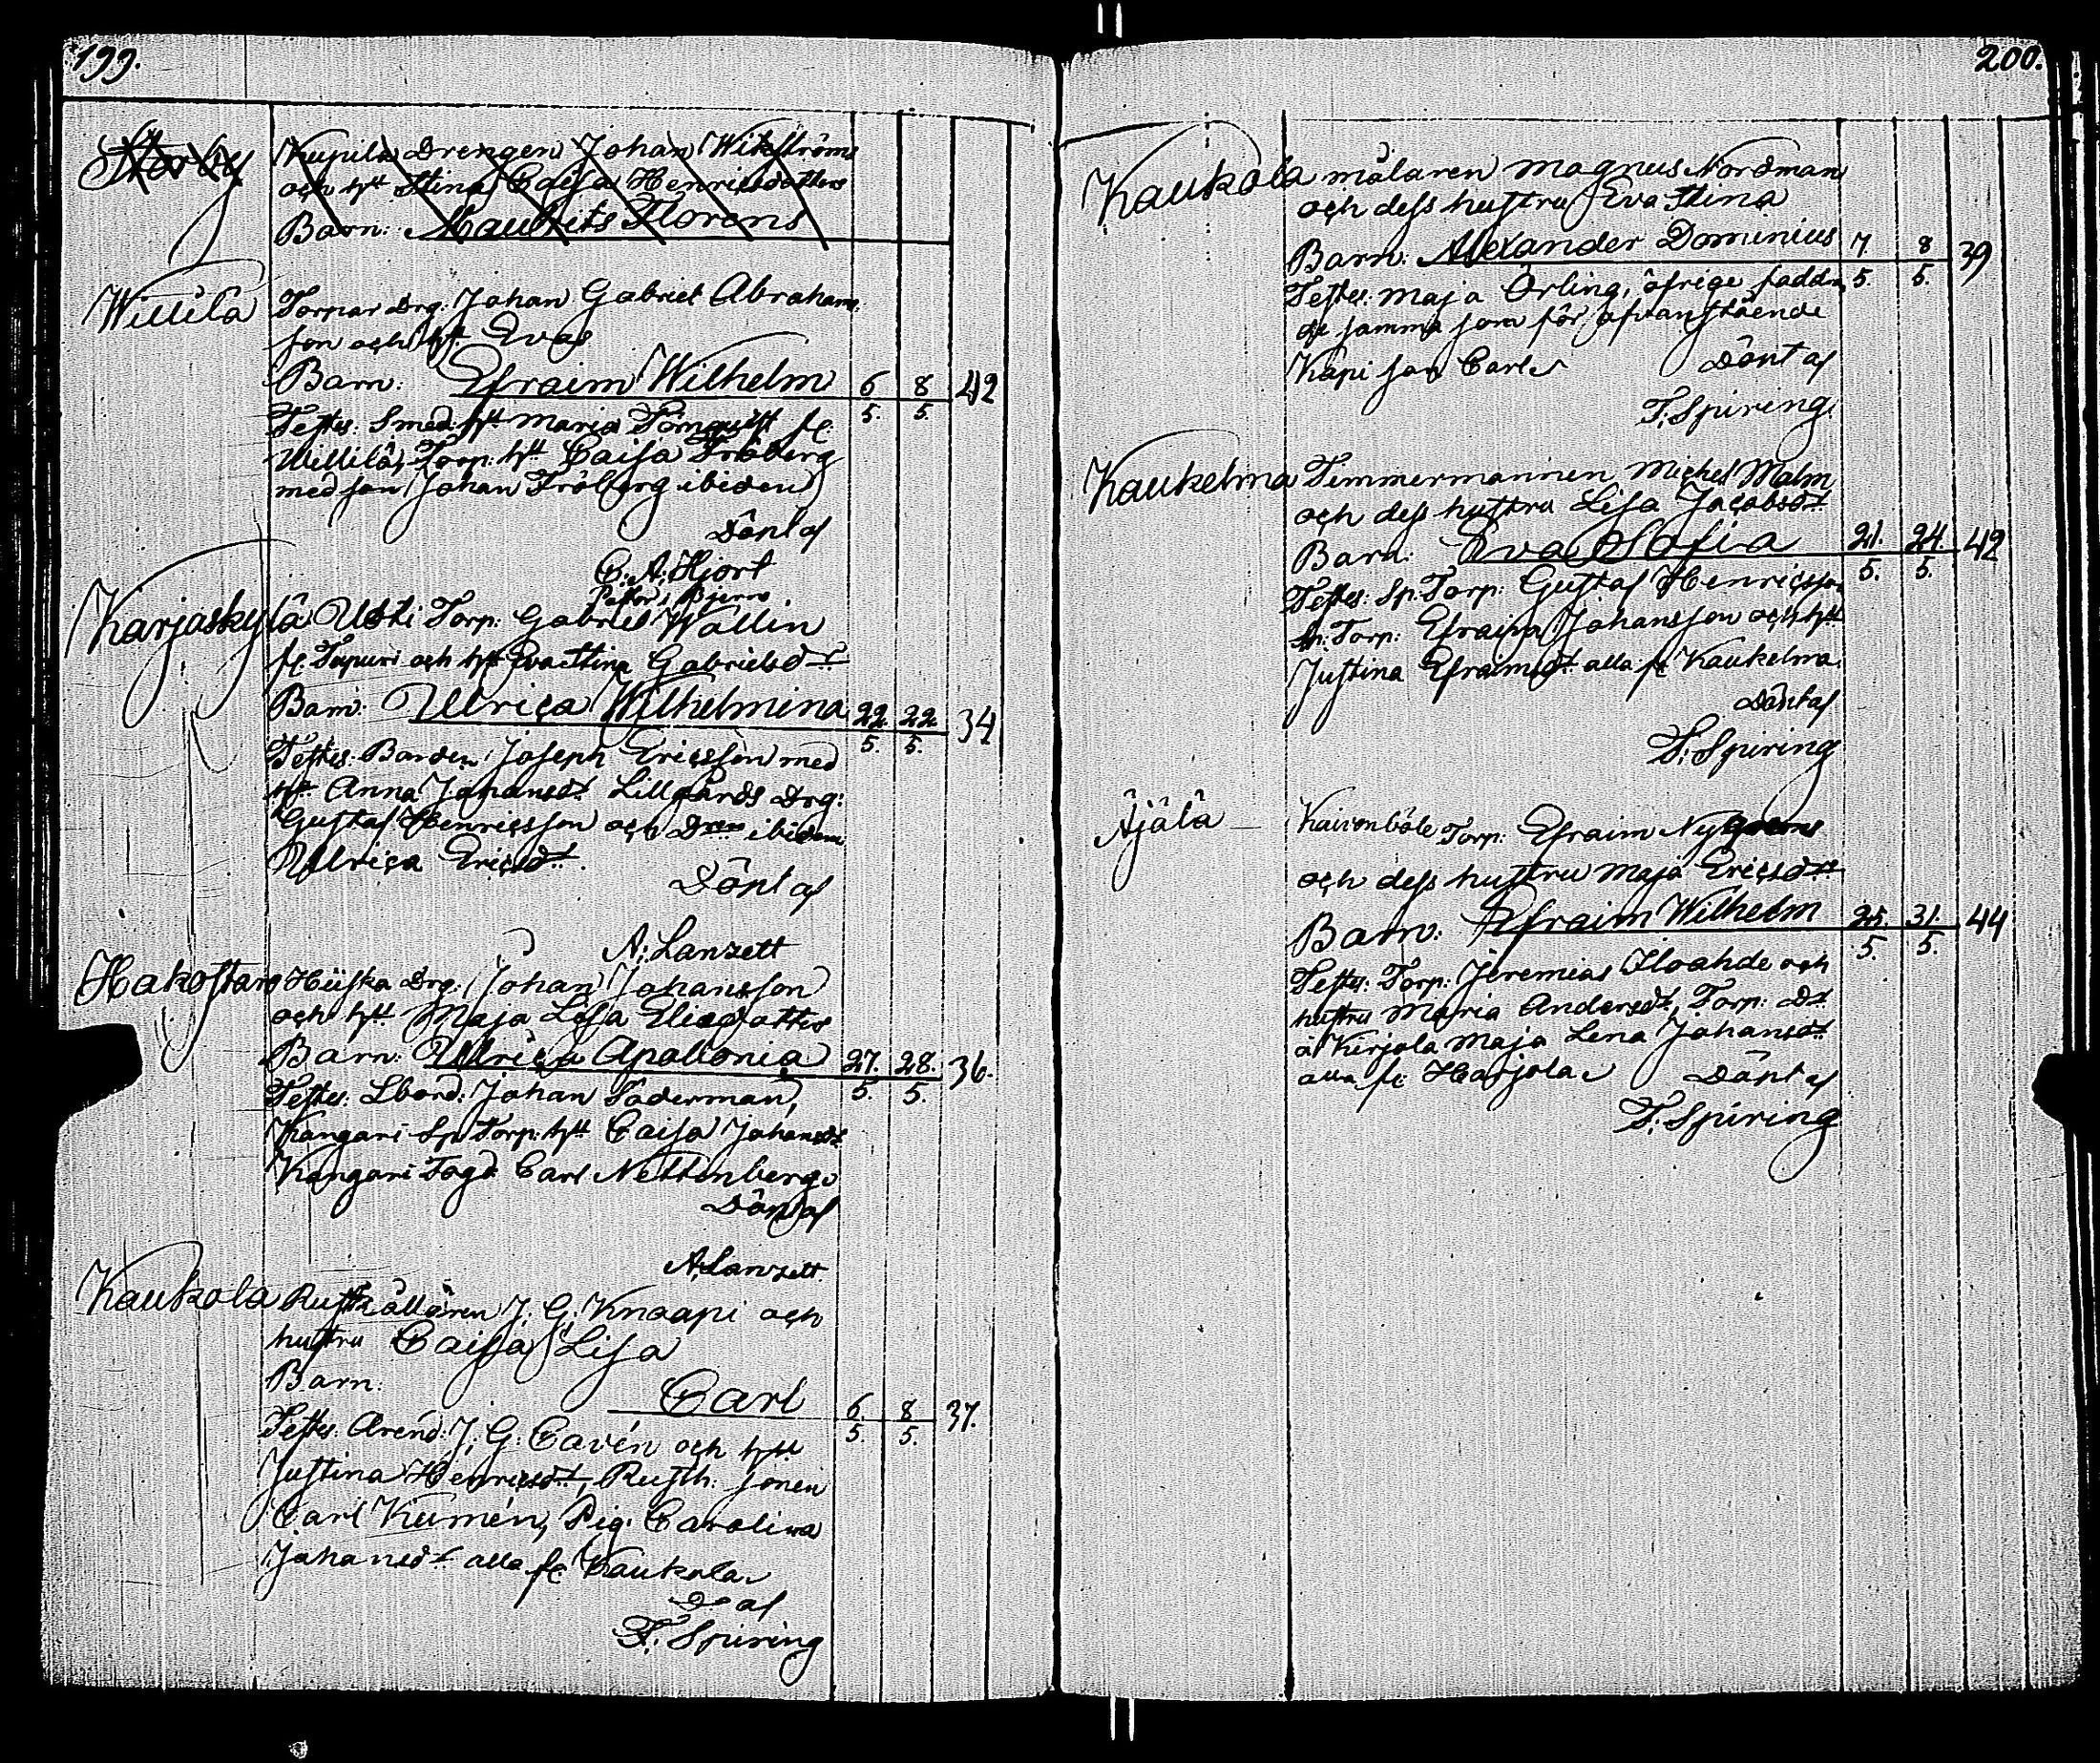 199.
Storby Kupila Drengen Johan Wikströms
och hst Stina Caisa Henricsdotter
Barn: Maurits Florens
Willilä Tornar Drg: Johan Gabriel Abrahams
son och hst Eva
Barn: Efraim Wilhelm 6/5. 8/5. 42
Testes: Smed: hst Maria Törnquist fr:
Willilä, Torp: hst Caisa Fröberg
med son Johan Fröberg ibidem
Döpt af
C: A: Hjort
Pastor i Bjerno
Karjaskylä Uoti Torp: Gabriel Wallin
fr. Tapuri och hst Eva Stina Gabrielsdr
Barn: Ulrica Wilhelmina 22./5. 22./5. 34
Testes: Bonden Joseph Ericsson med
hst Anna Johansdr Lillgårds Drg:
Gustaf Henricsson och ibidem
Ulrica Ericsdr.
Döpt af
A: Lanzett
Hakostaro Hiiska Drg: Johan Johansson
och hst Maja Lisa Eliedotter
Barn: Ulrica Apollonia 27./5. 28./5. 36.
Testes: Lbond: Johan Söderman,
Kangari Sp: Torp: hst Caisa Johansdr
Kangari Fogd Carl Nettenberg
Döpt af
A: Lanzett
Kaukola Rusthållaren J: G: Knaapi och
hustru Caisa Lisa
Barn: Carl 6./5. 8/5. 37.
Testes: Arend: J: G: Cavén och hst
Justina Henricsdr, Rusth: sonen
Carl Kumén, Pig: Carolina
Johansdr alla fr: Kaukola
Do af
F: Spiring
200.
Kaukola målaren Magnus Nordman
och dess hustru Eva Stina
Barn: Alexander Dominius 7./5. 8/5. 39
Testes: Maja Örling, öfrige faddr,
de samma som för ofvanstående
Kapi son Carl Döpt af
F: Spiring
Kaukelma Timmermannen Michel Malm
och dess hustru Lisa Jacobsdr
Barn: Eva Sofia 21./5. 24./5. 42
Testes: Sp: Torp: Gustaf Henricsson
Torp: Efraim Johansson och hst
Justina Efraimsdr alla fr Kaukelma.
Döpt af
F: Spiring
Äjälä — Kaivonböle Torp: Efraim
och dess hustru Maja Ericsdr
Barn: Efraim Wilhelm 25./5. 31./5. 44
Testes: Torp: Jeremias och
hustru Maria Andersdr, Torp: Dr
å Kirjola Maja Lena Johansdr
alla fr: Harjola Döpt af
F: Spiring